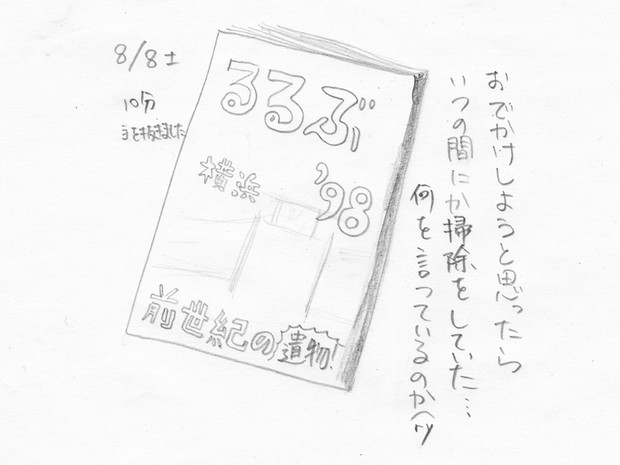 8/8土
10分
手を抜きました
るるぶ
横浜
'98
前世紀の遺物!
おでかけしようと思ったら
いつの間にか掃除をしていた…
何を言っているのか(ry